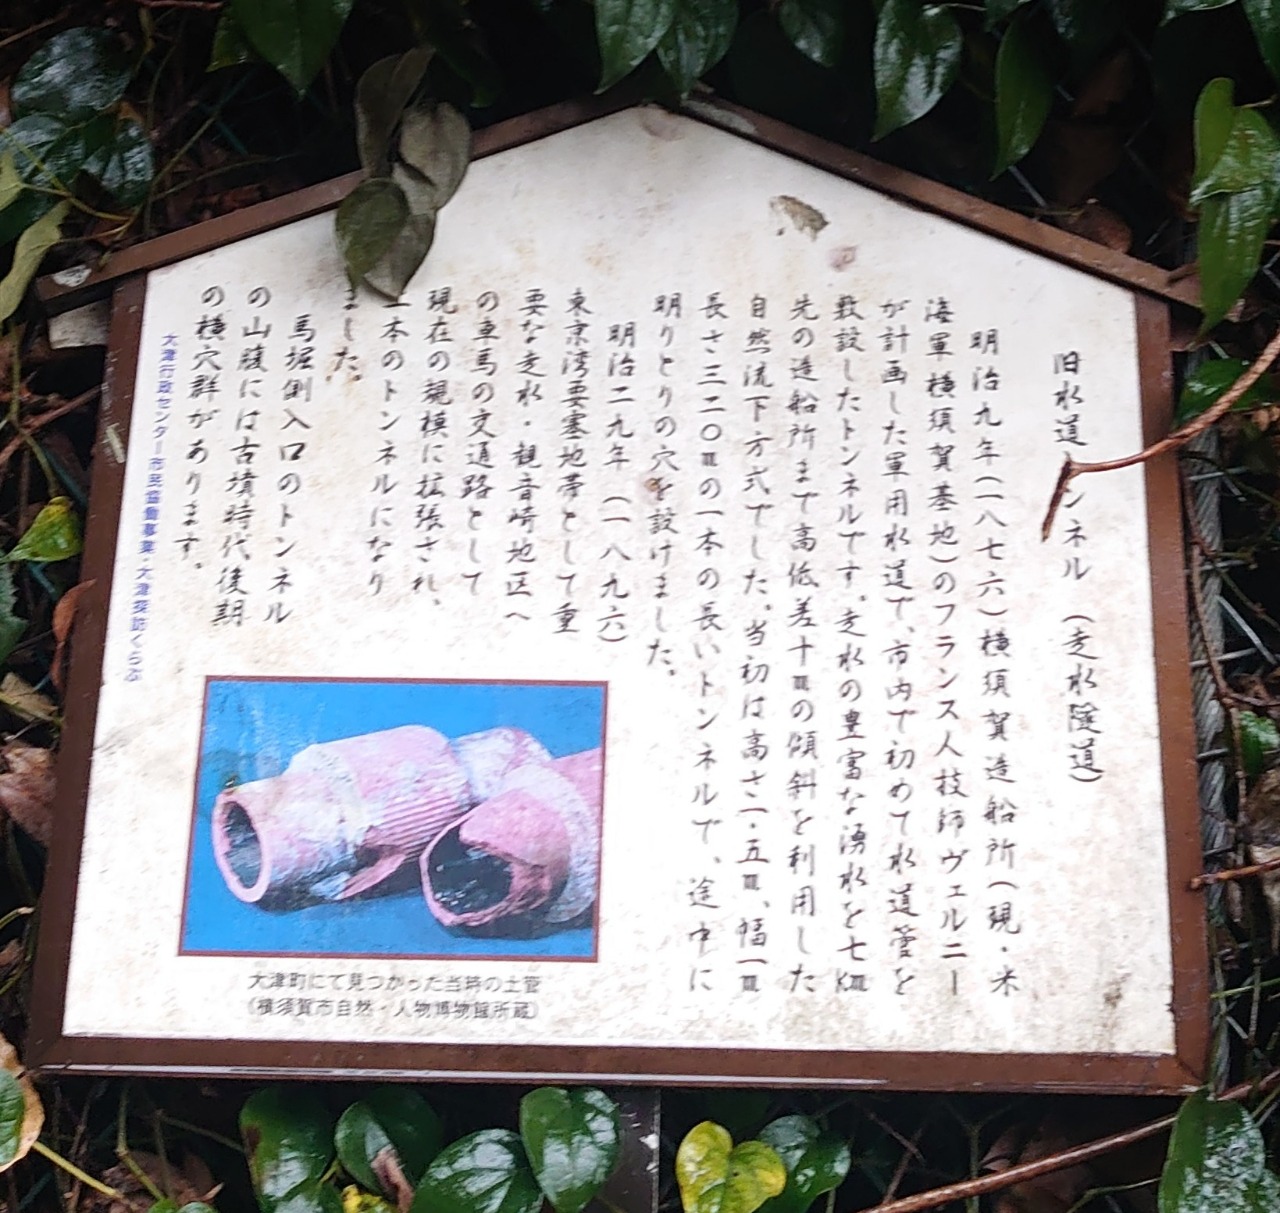 旧水道トンネル（走水隧道）
明治九年（一八七六）横須賀造船所（現・米
海軍横須賀基地）のフランス人技師ヴェルニー
が計画した軍用水道で、市内で初めて水道管を
敷設したトンネルです。走水の豊富な湧水を七㎞
先の造船所まで高低差十ｍの傾斜を利用した
自然流下方式でした。当初は高さ一・五ｍ、幅一ｍ
長さ三二〇ｍの一本の長いトンネルで、途中に
明りとりの穴を設けました。
明治二九年（一八九六）
東京湾要塞地帯として重
要な走水・観音崎地区へ
の車馬の交通路として
現在の規模に拡張され、
本のトンネルになり
ました。
馬堀側入口のトンネル
の山腹には古墳時代後期
の横穴群があります。
大津行政センター市民協働事業・大津探訪くらぶ
大津町にて見つかった当時の土管
（横須賀市自然・人物博物館所蔵）